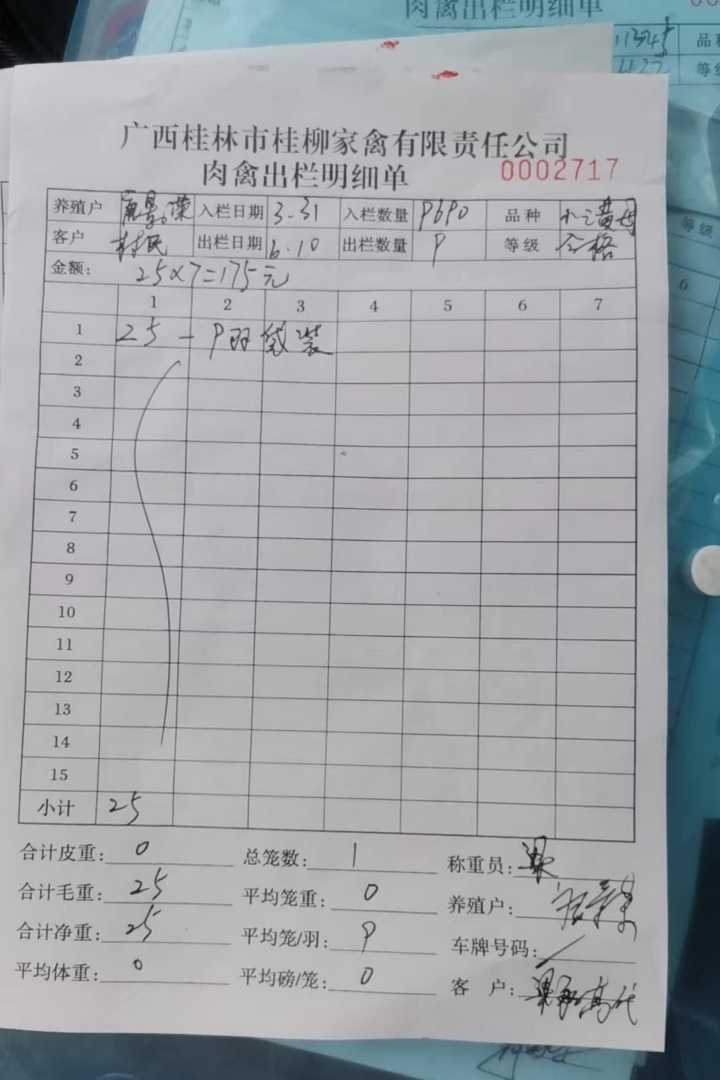 肉禽出栏明细单
11345 品种
422 等级
广西桂林市桂柳家禽有限责任公司
肉禽出栏明细单 0002717
养殖户 入栏日期 3.31 入栏数量 9690 品种
客户 村民 出栏日期 6.10 出栏数量 9 等级 合格
金额: 25×7=175元
1 2 3 4 5 6 7
1 25 — 9羽 袋装
2
3
4
5
6
7
8
9
10
11
12
13
14
15
小计 25
合计皮重: 0 总笼数: 1 称重员:
合计毛重: 25 平均笼重: 0 养殖户:
合计净重: 25 平均笼/羽: 9 车牌号码: /
平均体重: 0 平均磅/笼: 0 客 户:
等级
6